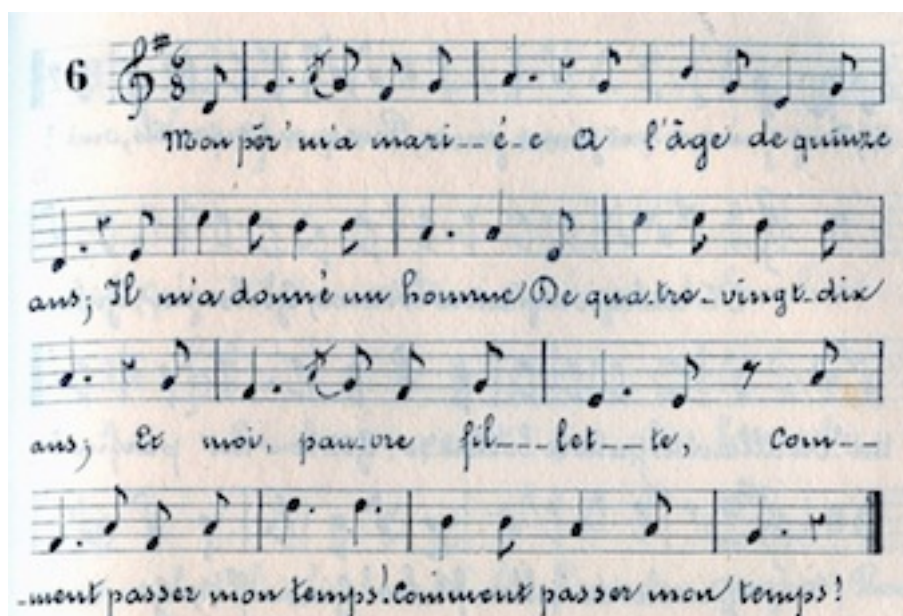 6
Mon pèr' m'a mari--é-e A l'âge de quinze
ans; Il m'a donné un homme De qua-tre-vingt-dix
ans; Et moi, pau-vre fil---let--te, Com--
-ment passer mon temps! Comment passer mon temps!